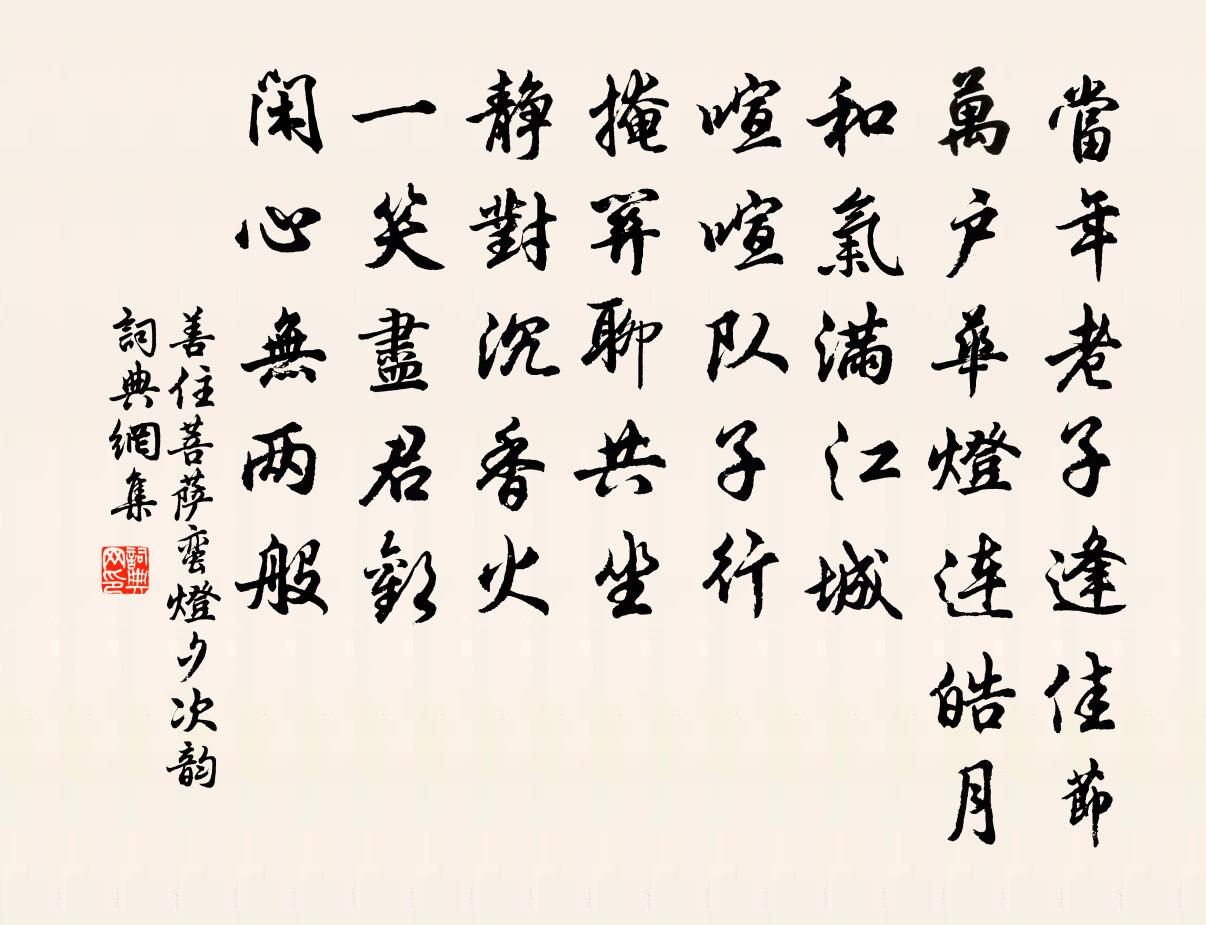 當年老子逢佳節
萬户華燈连皓月
和氣滿江城
喧喧队子行
掩關聊共坐
静對沉香火
一笑盡君歡
閑心無两般
善住菩萨蛮燈夕次韵
詞典網集
詞典网印